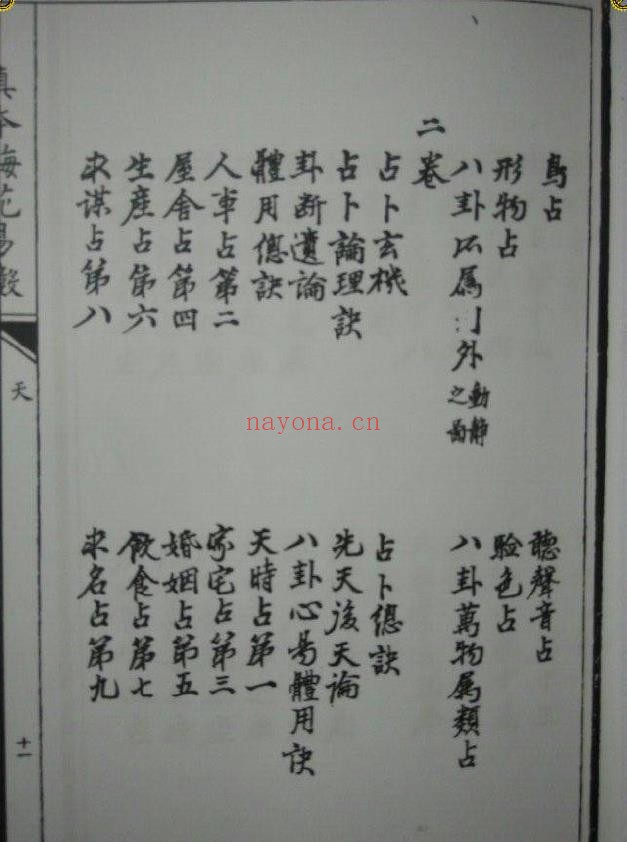 鳥占
聽聲音占
形物占
驗色占
八卦所属外動靜之啚
八卦萬物属類占
二卷
占卜玄機
占卜總訣
占卜論理訣
先天後天論
卦斷遺論
八卦心易體用訣
體用總訣
天時占第一
人事占第二
家宅占第三
屋舍占第四
婚姻占第五
生産占第六
飲食占第七
求謀占第八
求名占第九
真本梅花易數
天
十一
nayona.cn